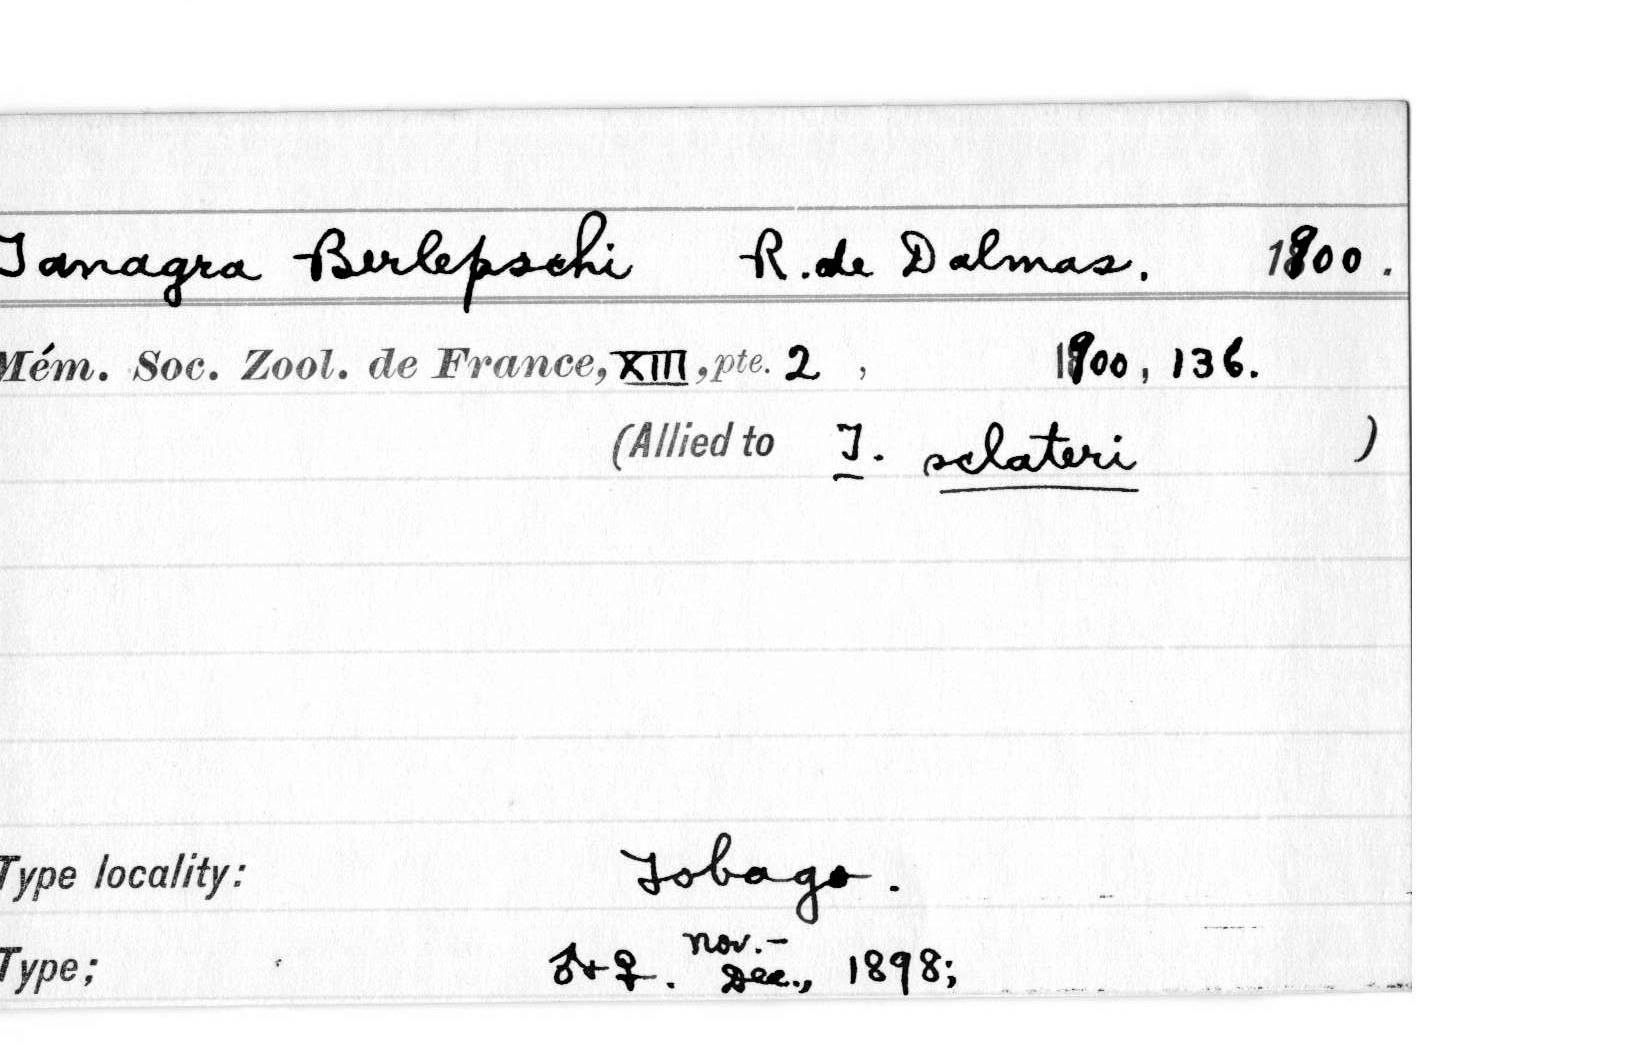 Tanagra Berlepschi R. de Dalmas. 1900.
Mém. Soc. Zool. de France, XIII, pte. 2, 1900, 136.
(Allied to T. sclateri )
Type locality: Tobago.
Nov.-
Type; ♂+♀. Dec., 1898;